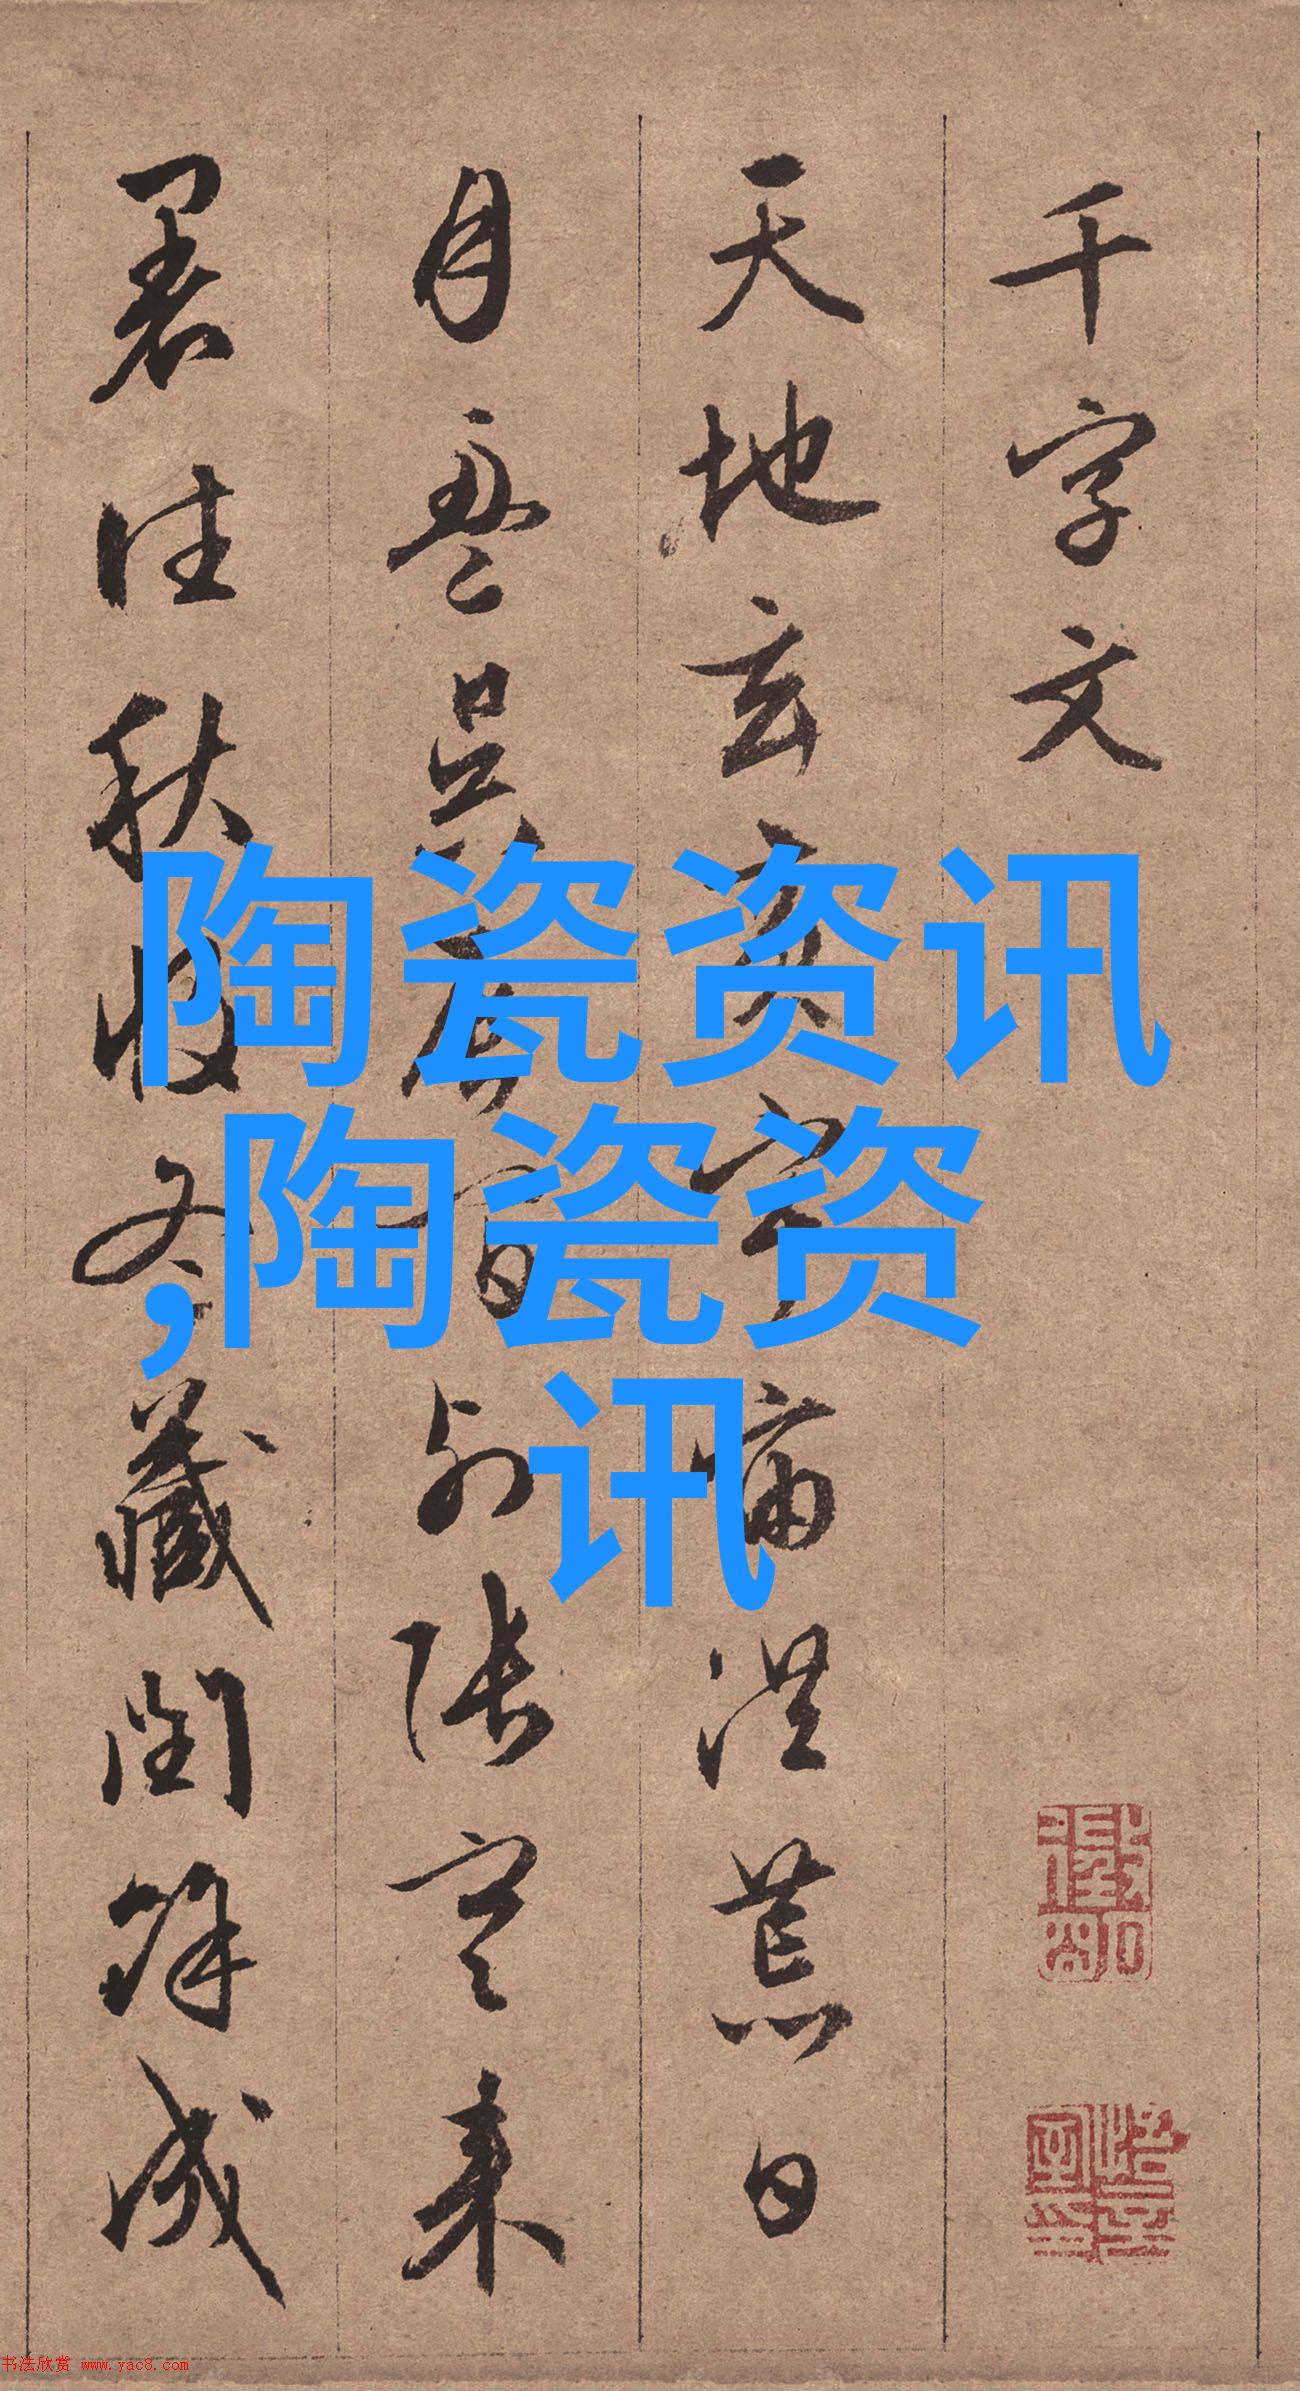 千字文
天地玄黄宇宙洪荒日
月盈昃辰宿列张寒来
暑往秋收冬藏闰余成
陶瓷资讯
,陶瓷资
讯
书法欣赏 www.yac8.com